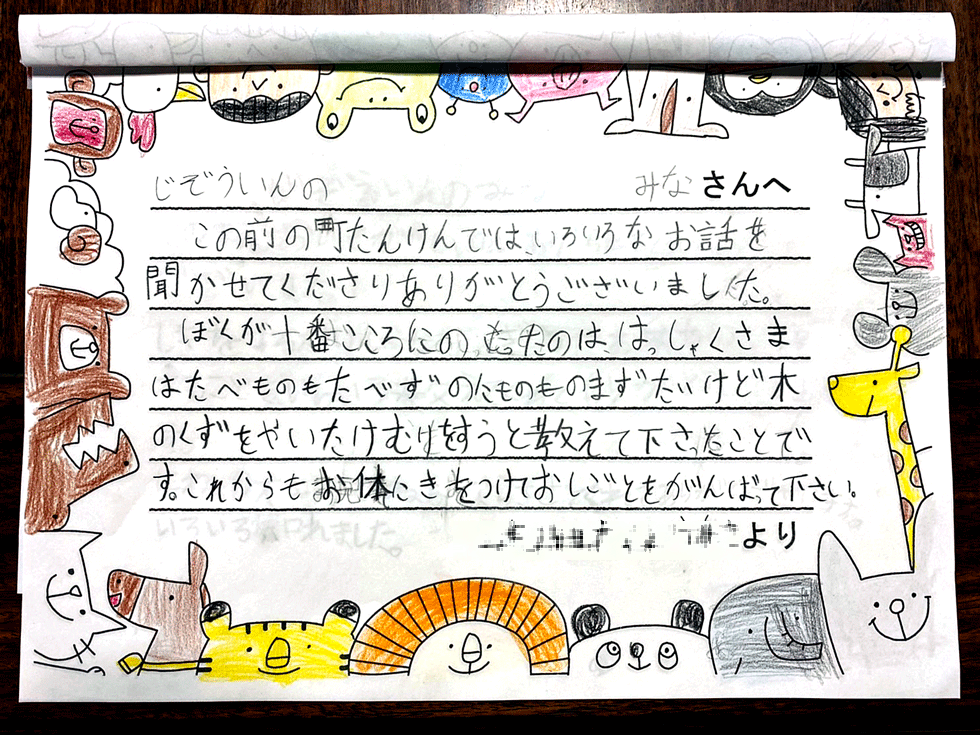 じぞういんの みなさんへ
この前の町たんけんでは、いろいろな お話を
聞かせてくださりありがとうございました。
ぼくが十番こころにのこったのは、はっしゃくさま
はたべものもたべずのたものものまずだいけど木
のくずをやいたけむりをすうと教えて下さったことで
す。これからもお体にきをつけておしごとをがんばって下さい。
より